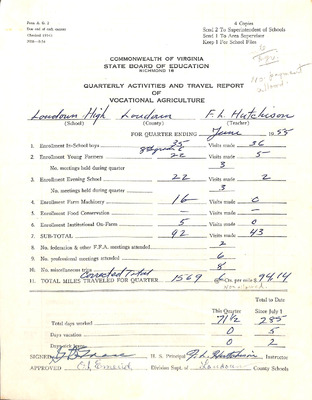 Form A. G. 2
4 Copies
Send 2 To Superintendent of Schools
Send 1 To Area Supervisor
Keep 1 For School Files
no payment
allowed.
COMMONWEALTH OF VIRGINIA
STATE BOARD OF EDUCATION
RICHMOND 16
QUARTERLY ACTIVITIES AND TRAVEL REPORT
OF
VOCATIONAL AGRICULTURE
Loudoun High Loudoun F. L. Hutchison
(School) (County) (Teacher)
FOR QUARTER ENDING June 1955
1. Enrollment In-School boys 35 Visits made 36
2. Enrollment Young Farmers 22 Visits made 5
No. meetings held during quarter 3
3. Enrollment Evening School 22 Visits made 2
No. meetings held during quarter 3
4. Enrollment Farm Machinery 16 Visits made 0
5. Enrollment Food Conservation — Visits made —
6. Enrollment Institutional On-Farm 5 Visits made 0
7. SUB-TOTAL 92 Visits made 43
8. No. federation & other F.F.A. meetings attended 2
9. No. professional meetings attended 6
10. No. miscellaneous trips 8
Corrected Total
11. TOTAL MILES TRAVELED FOR QUARTER 1569 6 Cts. per mile $ 94.14
Total to Date
This Quarter Since July 1
Total days worked 71½ 285
Days vacation 0 5
Days sick leave 0 2
SIGNED H. S. Principal F. L. Hutchison Instructor
APPROVED Division Supt. of Loudoun County Schools